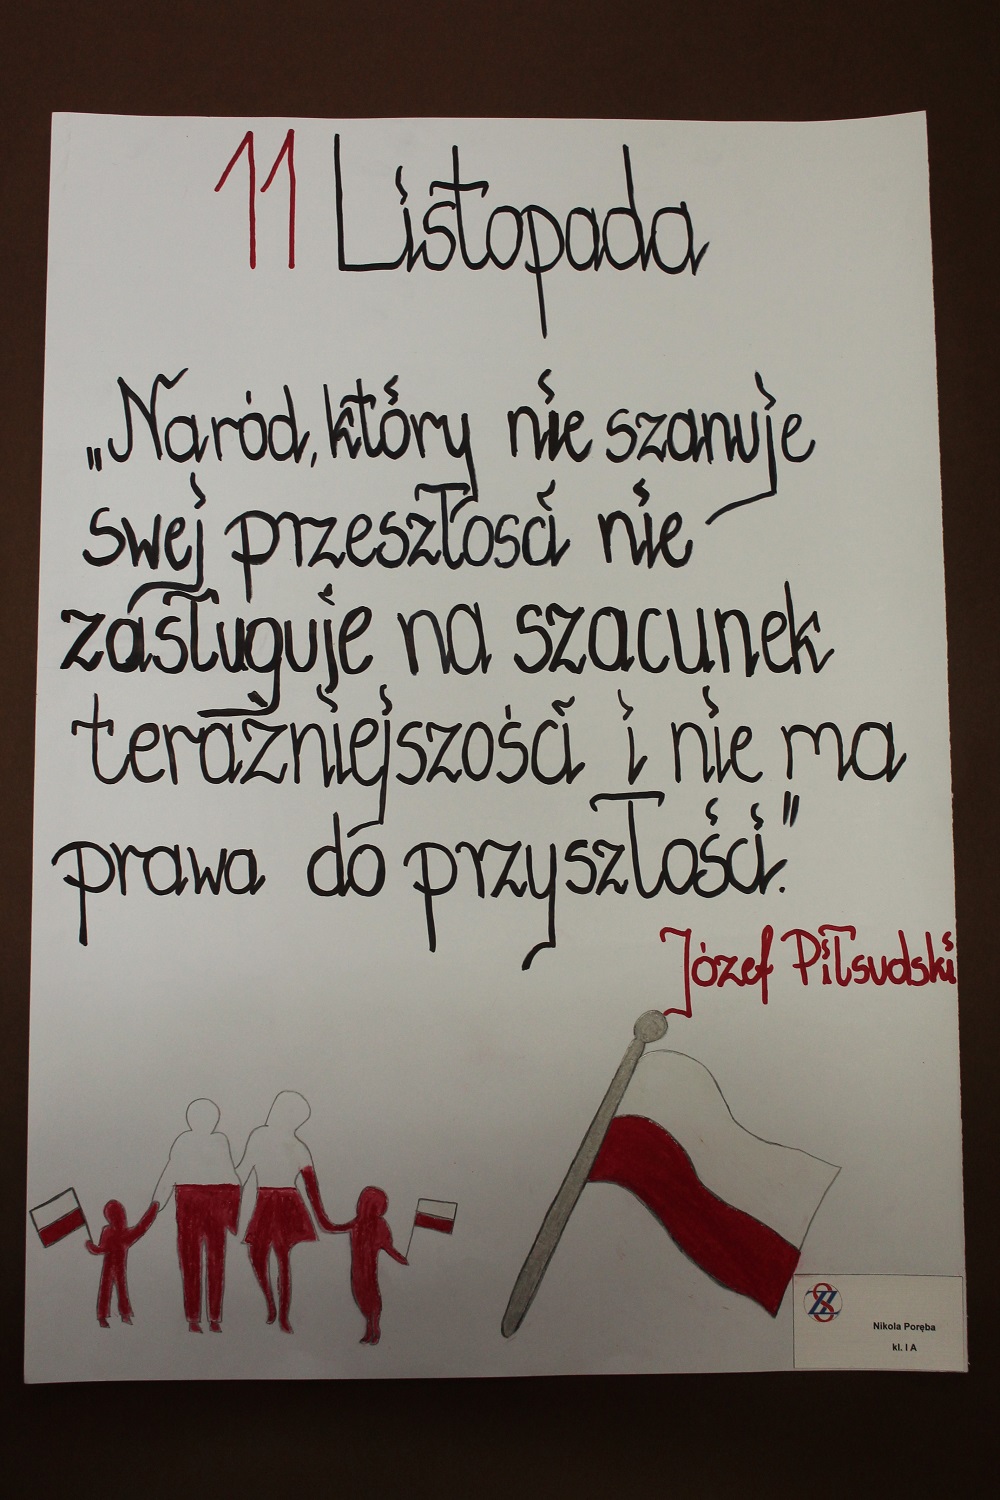 11 Listopada
„Naród, który nie szanuje
swej przeszłości nie
zasługuje na szacunek
teraźniejszości i nie ma
prawa do przyszłości."
Józef Piłsudski
Nikola Poręba
kl. I A